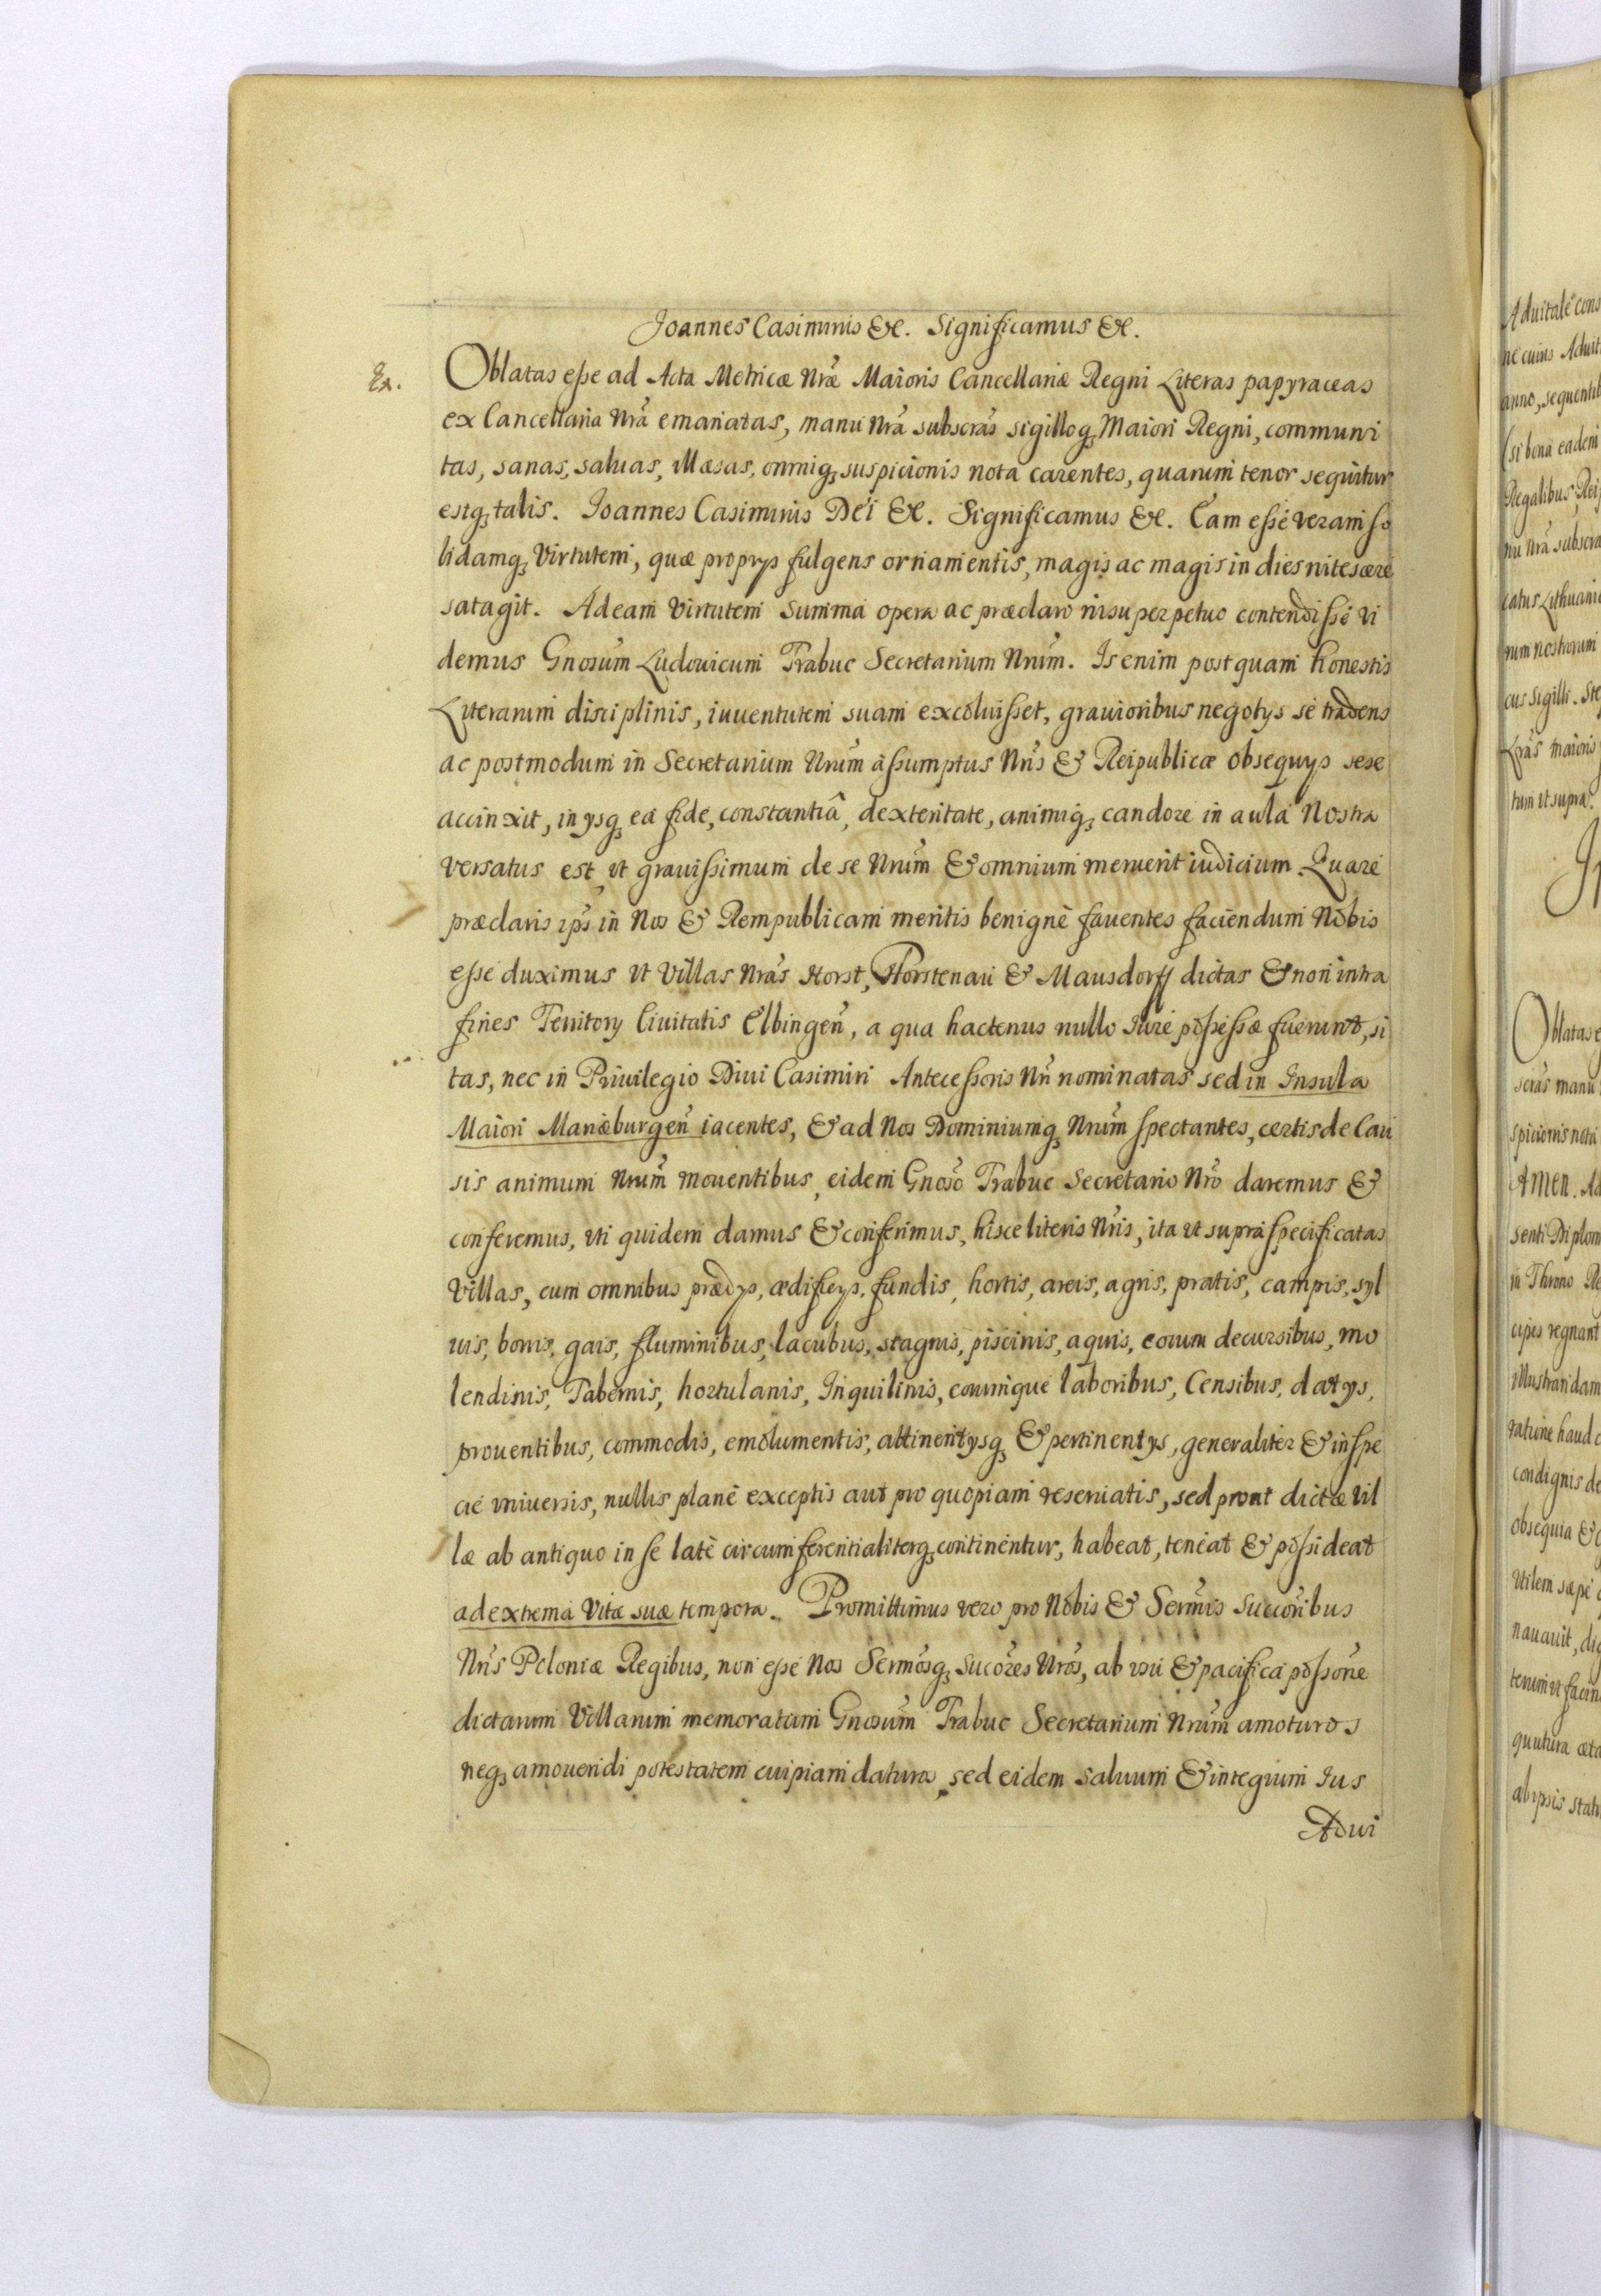 Joannes Casimirus &c. Significamus &c.
Ex.
Oblatas esse ad Acta Metricæ Nræ Maioris Cancellariæ Regni Literas papyraceas
ex Cancellaria Nrã emanatas, manu Nrã subscrãs sigilloq, Maiori Regni, communi
tas, sanas, saluas, illæsas, omniq, suspicionis nota carentes, quarum tenor sequitur
estq, talis. Joannes Casimirus Dei &c. Significamus &c. Eam esse veram so
lidamq, Virtutem, quæ proprys fulgens ornamentis, magis ac magis in dies nitescere
satagit. Ad eam Virtutem Summa opera ac præclaro nisu perpetuo contendisse vi
demus Gnosum Ludouicum Trabuc Secretarium Nrum. Is enim postquam honestis
Literarum disciplinis, iuuentutem suam excoluisset, grauioribus negotys se tradens
ac postmodum in Secretarium Nrum assumptus Nris & Reipublicæ obsequys sese
accinxit, in ysq, ea fide, constantiâ, dexteritate, animiq, candore in aula Nostra
versatus est, vt grauissimum de se Nrum & omnium meruerit iudicium. Quare
præclaris ips in Nos & Rempublicam meritis benignè fauentes faciendum Nobis
esse duximus vt Villas Nras Horst, Horstenau & Mausdorff dictas & non intra
fines Territory Ciuitatis Elbingen, a qua hactenus nullo Iure possessæ fuerunt, si
tas, nec in Priuilegio Diui Casimiri Antecessoris Nri nominatas sed in Insula
Maiori Mariæburgen iacentes, & ad Nos Dominiumq, Nrum spectantes, certis de Cau
sis animum Nrum mouentibus, eidem Gnoso Trabuc Secretario Nro daremus &
conferemus, vti quidem damus & conferimus, hisce literis Nris, ita vt supra specificatas
Villas, cum omnibus prædys, ædificys, fundis, hortis, areis, agris, pratis, campis, syl
uis, borris, gais, fluminibus, lacubus, stagnis, piscinis, aquis, eorum decursibus, mo
lendinis, Tabernis, hortulanis, Inquilinis, eorumque laboribus, Censibus, datys,
prouentibus, commodis, emolumentis, attinentysq, & pertinentys, generaliter & in spe
cie vniuersis, nullis planè exceptis aut pro quopiam reseruatis, sed prout dictæ Vil
læ ab antiquo in se latè circumferentialiterq, continentur, habeat, teneat & possideat
ad extrema Vitæ suæ tempora. Promittimus vero pro Nobis & Sermis Succoribus
Nris Poloniæ Regibus, non esse Nos Sermosq, Sucores Nros, ab vsu & pacifica possone
dictarum Villarum memoratum Gnosum Trabuc Secretarium Nrum amoturos
neq, amouendi potestatem cuipiam daturos, sed eidem saluum & integrum Ius
Adui